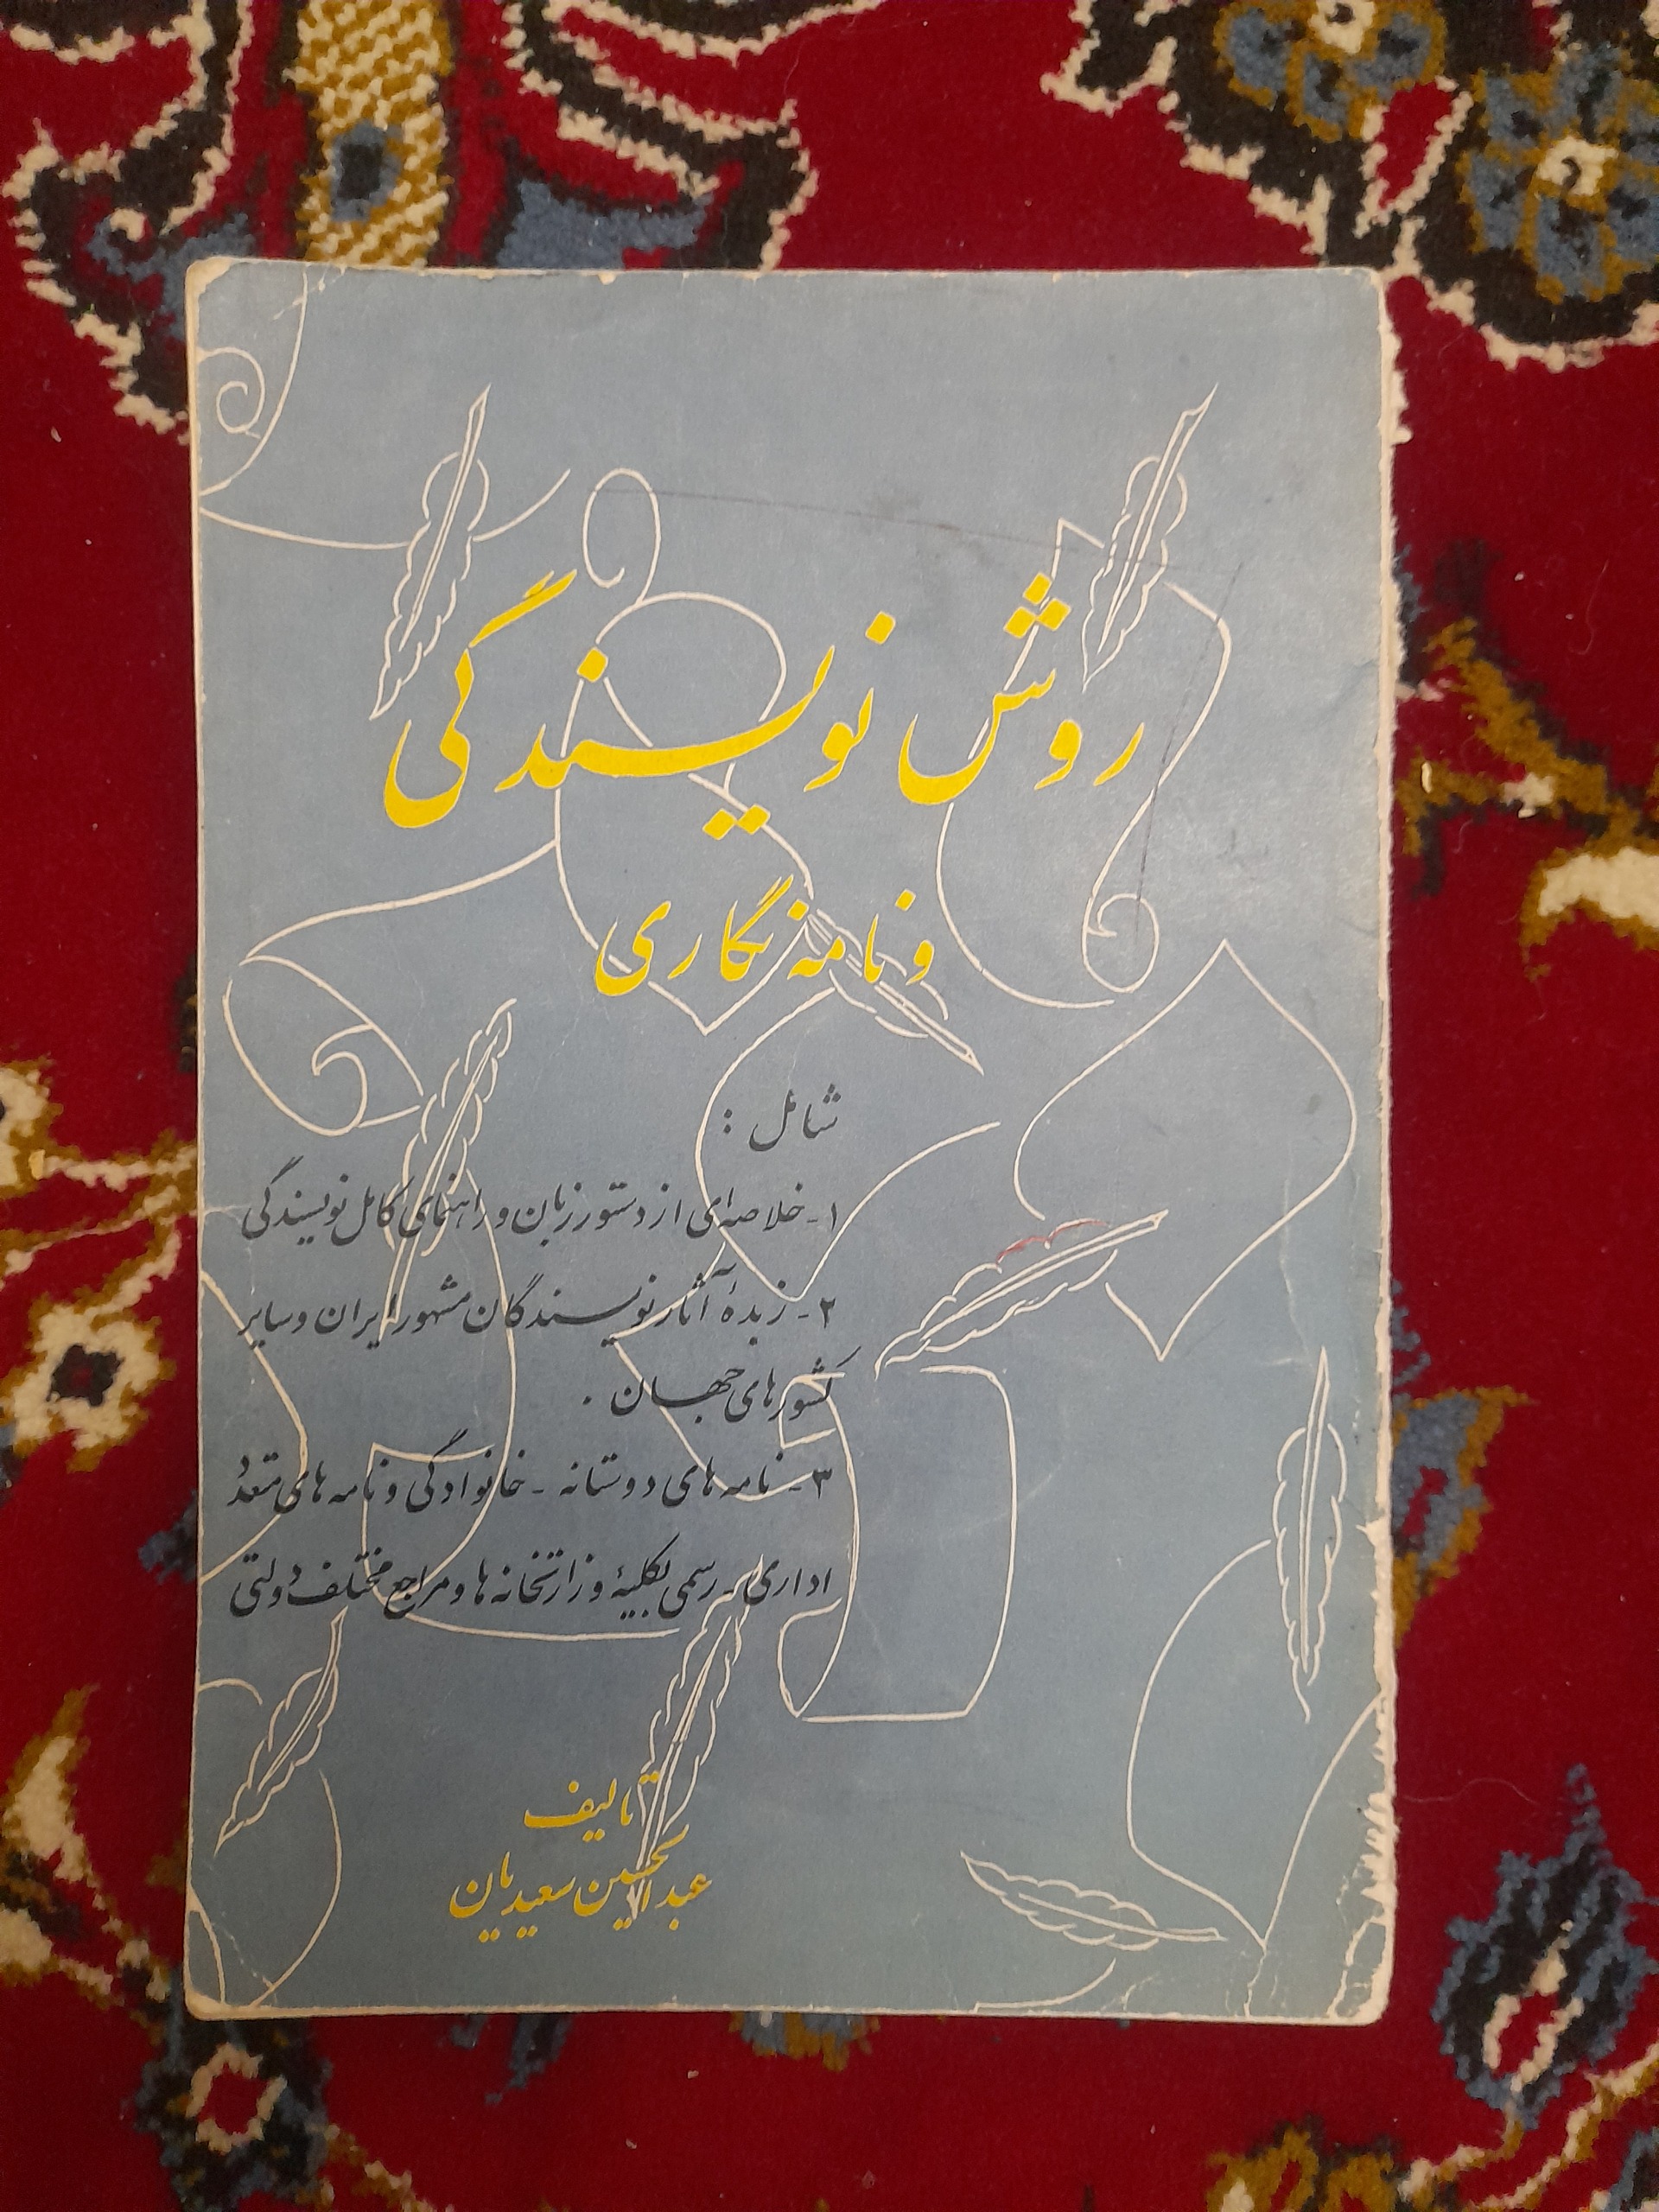 روش نویسندگی
و نامه نگاری
شامل :
۱- خلاصه‌ای از دستور زبان و راهنمای کامل نویسندگی
۲- زبدهٔ آثار نویسندگان مشهور ایران و سایر
کشورهای جهان .
۳- نامه های دوستانه - خانوادگی و نامه های متعدد
اداری - رسمی بکلیهٔ وزارتخانه ها و مراجع مختلف دولتی
تالیف
عبدالحسین سعیدیان